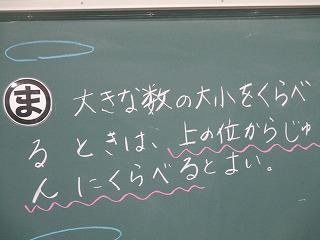 ま
大きな数の大小をくらべ
るときは、上の位からじゅ
んにくらべるとよい。